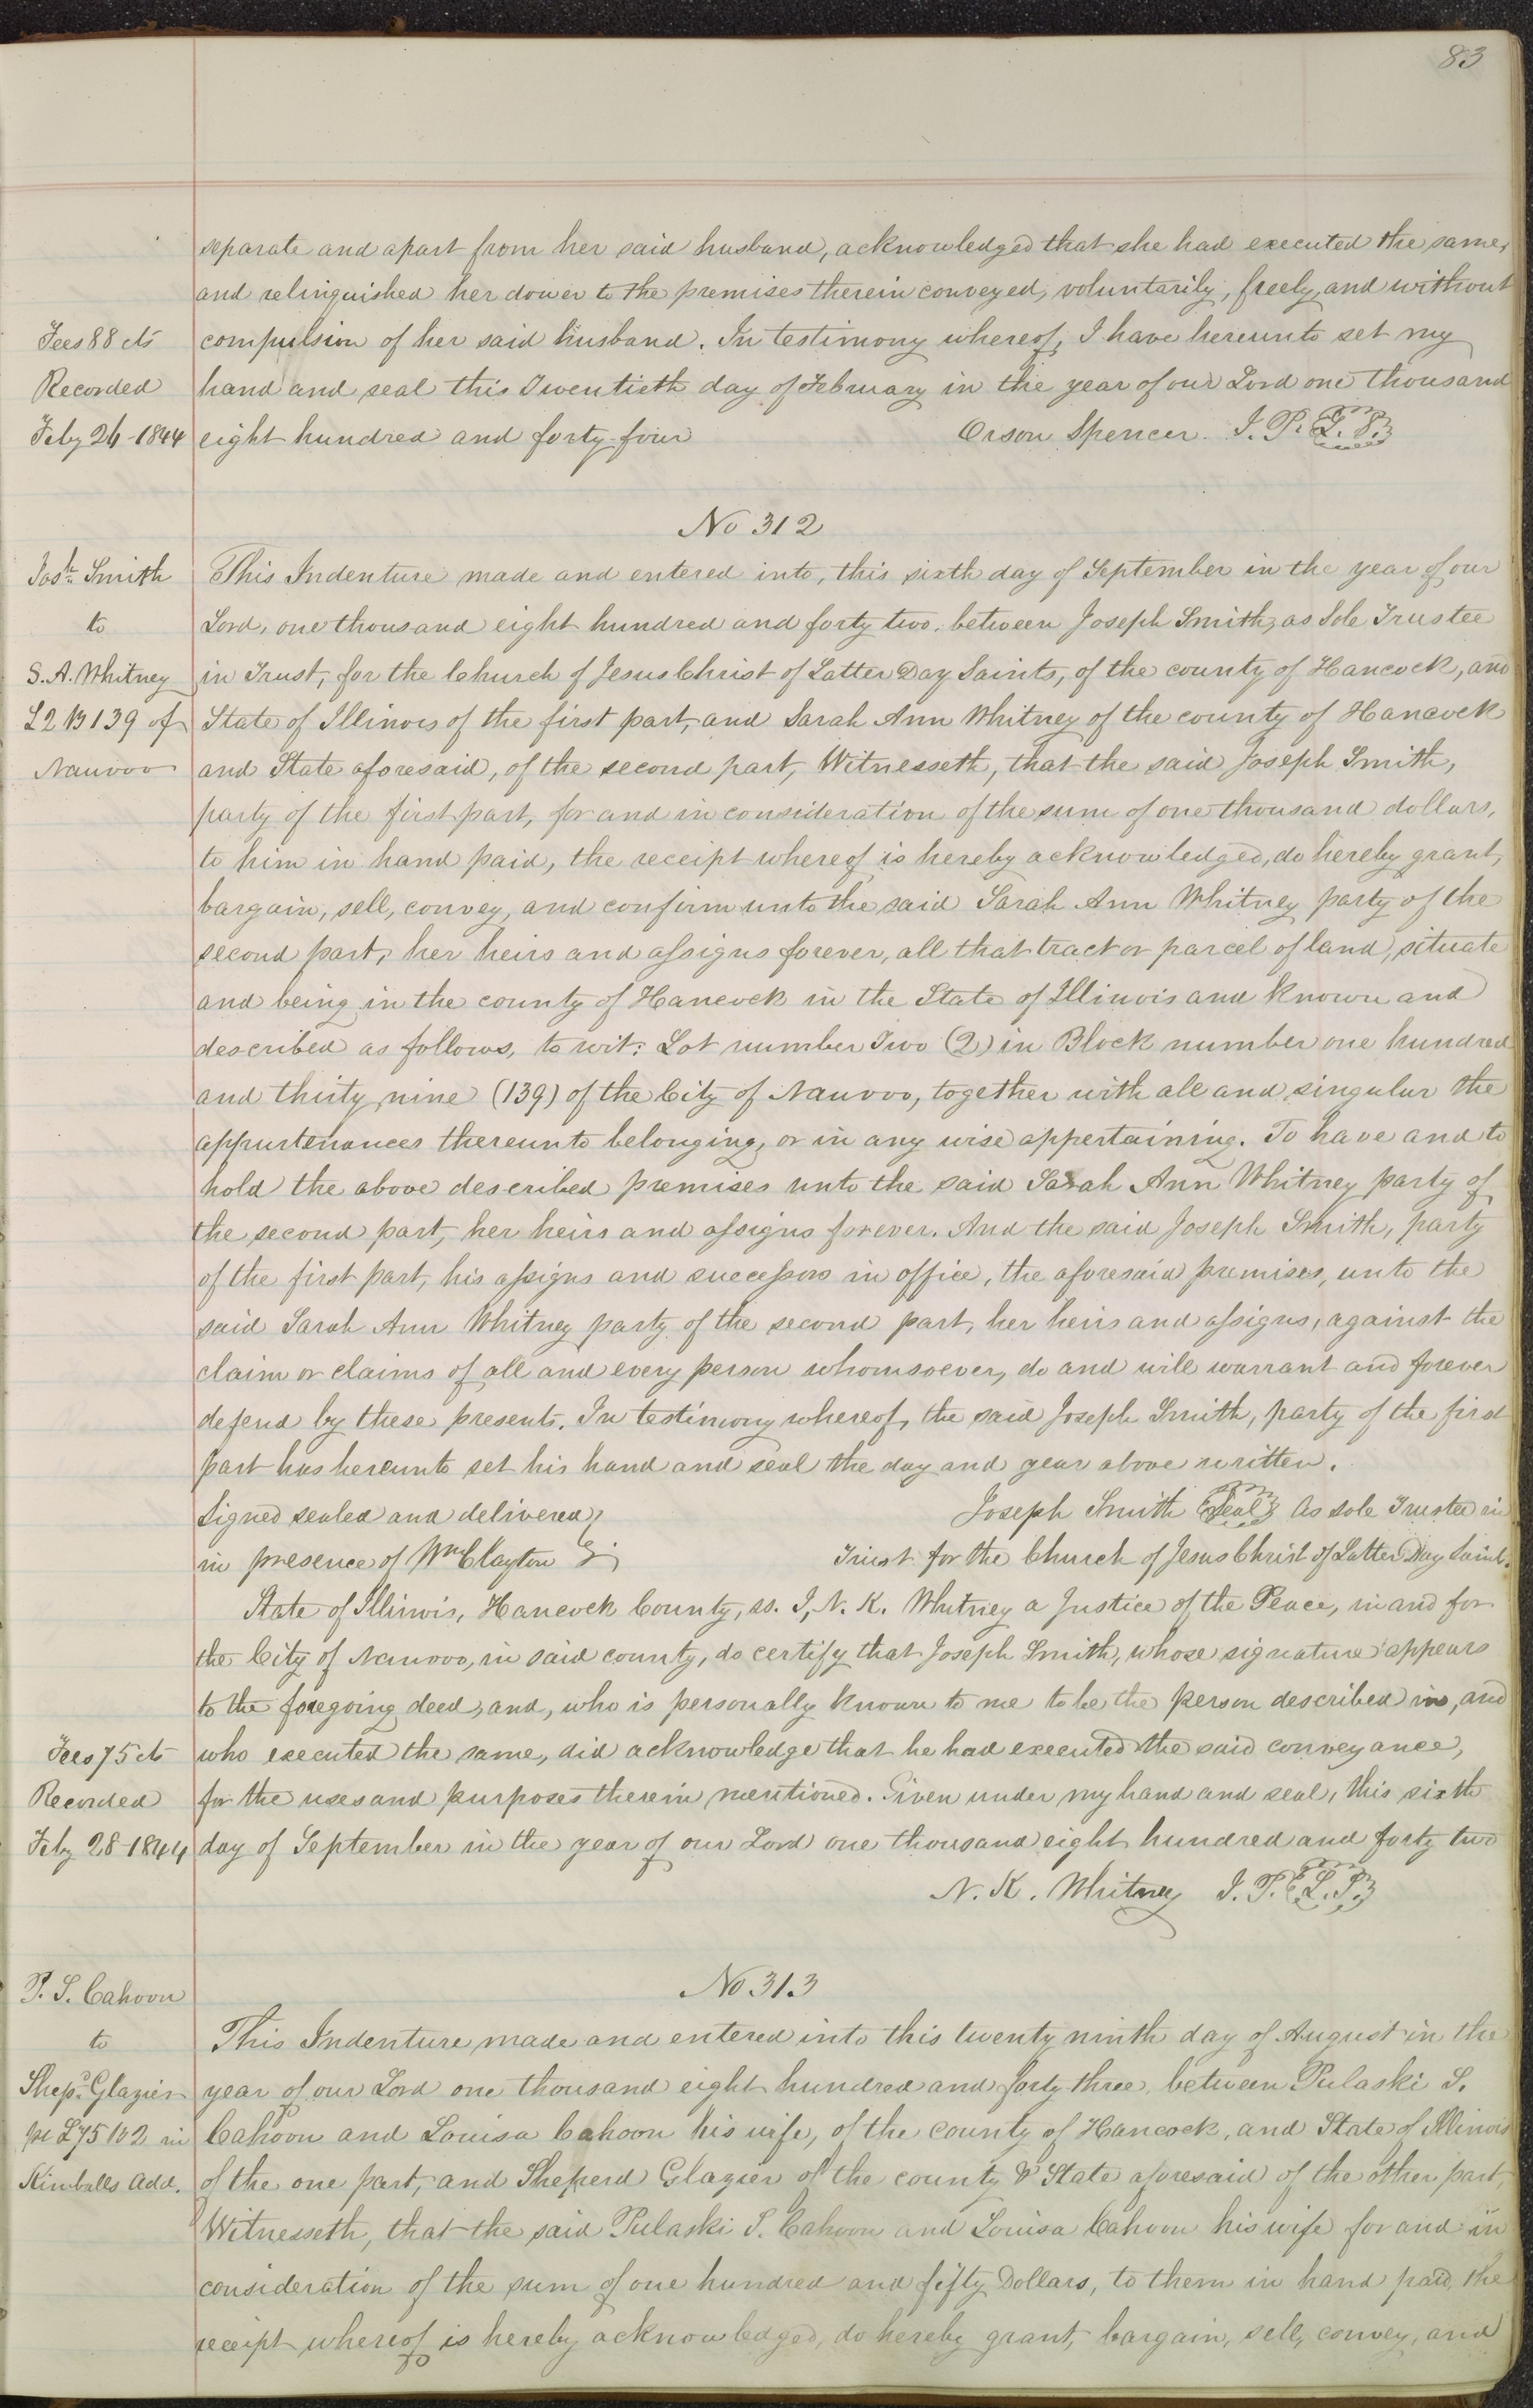 83
separate and apart from her said husband, acknowledged that she had executed the same,
and relinquished her dower to the premises therein conveyed, voluntarily, freely, and without
Fees 88 cts
compulsion of her said husband. In testimony whereof, I have hereunto set my
Recorded
hand and seal this Twentieth day of February in the year of our Lord one thousand
Feby 26-1844
eight hundred and forty-four
Orson Spencer. J. P. L. S.
No 312
Josh. Smith
This Indenture made and entered into, this sixth day of September in the year of our
to
Lord, one thousand eight hundred and forty two, between Joseph Smith, as Sole Trustee
S. A. Whitney
in Trust, for the Church of Jesus Christ of Latter Day Saints, of the county of Hancock, and
L 2 B 139 of
State of Illinois of the first part, and Sarah Ann Whitney of the county of Hancock
Nauvoo
and State aforesaid, of the second part, Witnesseth, that the said Joseph Smith,
party of the first part, for and in consideration of the sum of one thousand dollars,
to him in hand paid, the receipt whereof is hereby acknowledged, do hereby grant,
bargain, sell, convey, and confirm unto the said Sarah Ann Whitney party of the
second part, her heirs and assigns forever, all that tract or parcel of land, situate
and being in the county of Hancock in the State of Illinois and known and
described as follows, to wit: Lot number Two (2) in Block number one hundred
and thirty nine (139) of the City of Nauvoo, together with all and singular the
appurtenances thereunto belonging, or in any wise appertaining. To have and to
hold the above described premises unto the said Sarah Ann Whitney party of
the second part, her heirs and assigns forever. And the said Joseph Smith, party
of the first part, his assigns and successors in office, the aforesaid premises, unto the
said Sarah Ann Whitney party of the second part, her heirs and assigns, against the
claim or claims of all and every person whomsoever, do and will warrant and forever
defend by these presents. In testimony whereof, the said Joseph Smith, party of the first
part has hereunto set his hand and seal the day and year above written.
Signed sealed and delivered
Joseph Smith Seal As sole Trustee in
in presence of Wm Clayton
Trust for the Church of Jesus Christ of Latter Day Saints.
State of Illinois, Hancock County, ss. I, N. K. Whitney a Justice of the Peace, in and for
the City of Nauvoo, in said county, do certify that Joseph Smith, whose signature appears
to the foregoing deed, and, who is personally known to me to be the person described in, and
Fees 75 cts
who executed the same, did acknowledge that he had executed the said conveyance,
Recorded
for the uses and purposes therein mentioned. Given under my hand and seal, this sixth
Feby 28-1844
day of September in the year of our Lord one thousand eight hundred and forty two
N. K. Whitney J. P. L. S.
No 313
P. S. Cahoon
to
This Indenture made and entered into this twenty ninth day of August in the
Shepd. Glazier
year of our Lord one thousand eight hundred and forty-three, between Pulaski S.
pt L 75 B 2 in
Cahoon and Louisa Cahoon his wife, of the county of Hancock, and State of Illinois
Kimballs Add.
of the one part, and Sheperd Glazier of the county & State aforesaid of the other part,
Witnesseth, that the said Pulaski S. Cahoon and Louisa Cahoon his wife for and in
consideration of the sum of one hundred and fifty Dollars, to them in hand paid, the
receipt whereof is hereby acknowledged, do hereby grant, bargain, sell, convey, and